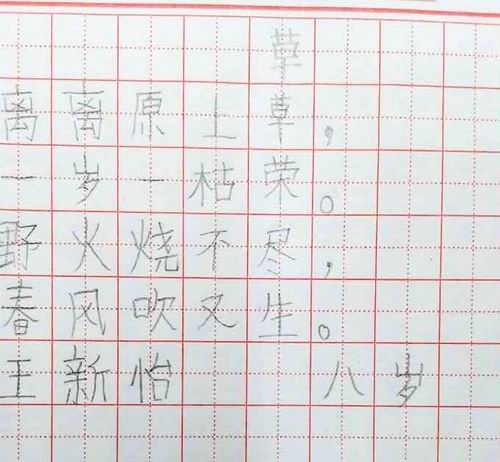 草
离离原上草，
一岁一枯荣。
野火烧不尽，
春风吹又生。
王新怡 八岁